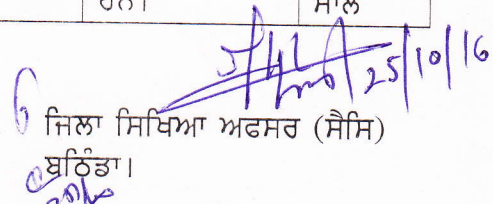 ਹਨ। ਸਾਲ
25/10/16
ਜਿਲਾ ਸਿਖਿਆ ਅਫਸਰ (ਸੈਸਿ)
ਬਠਿੰਡਾ।